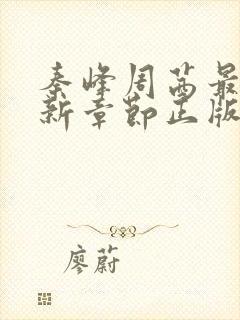 秦峰周茜最
新章節正版
廖蔚